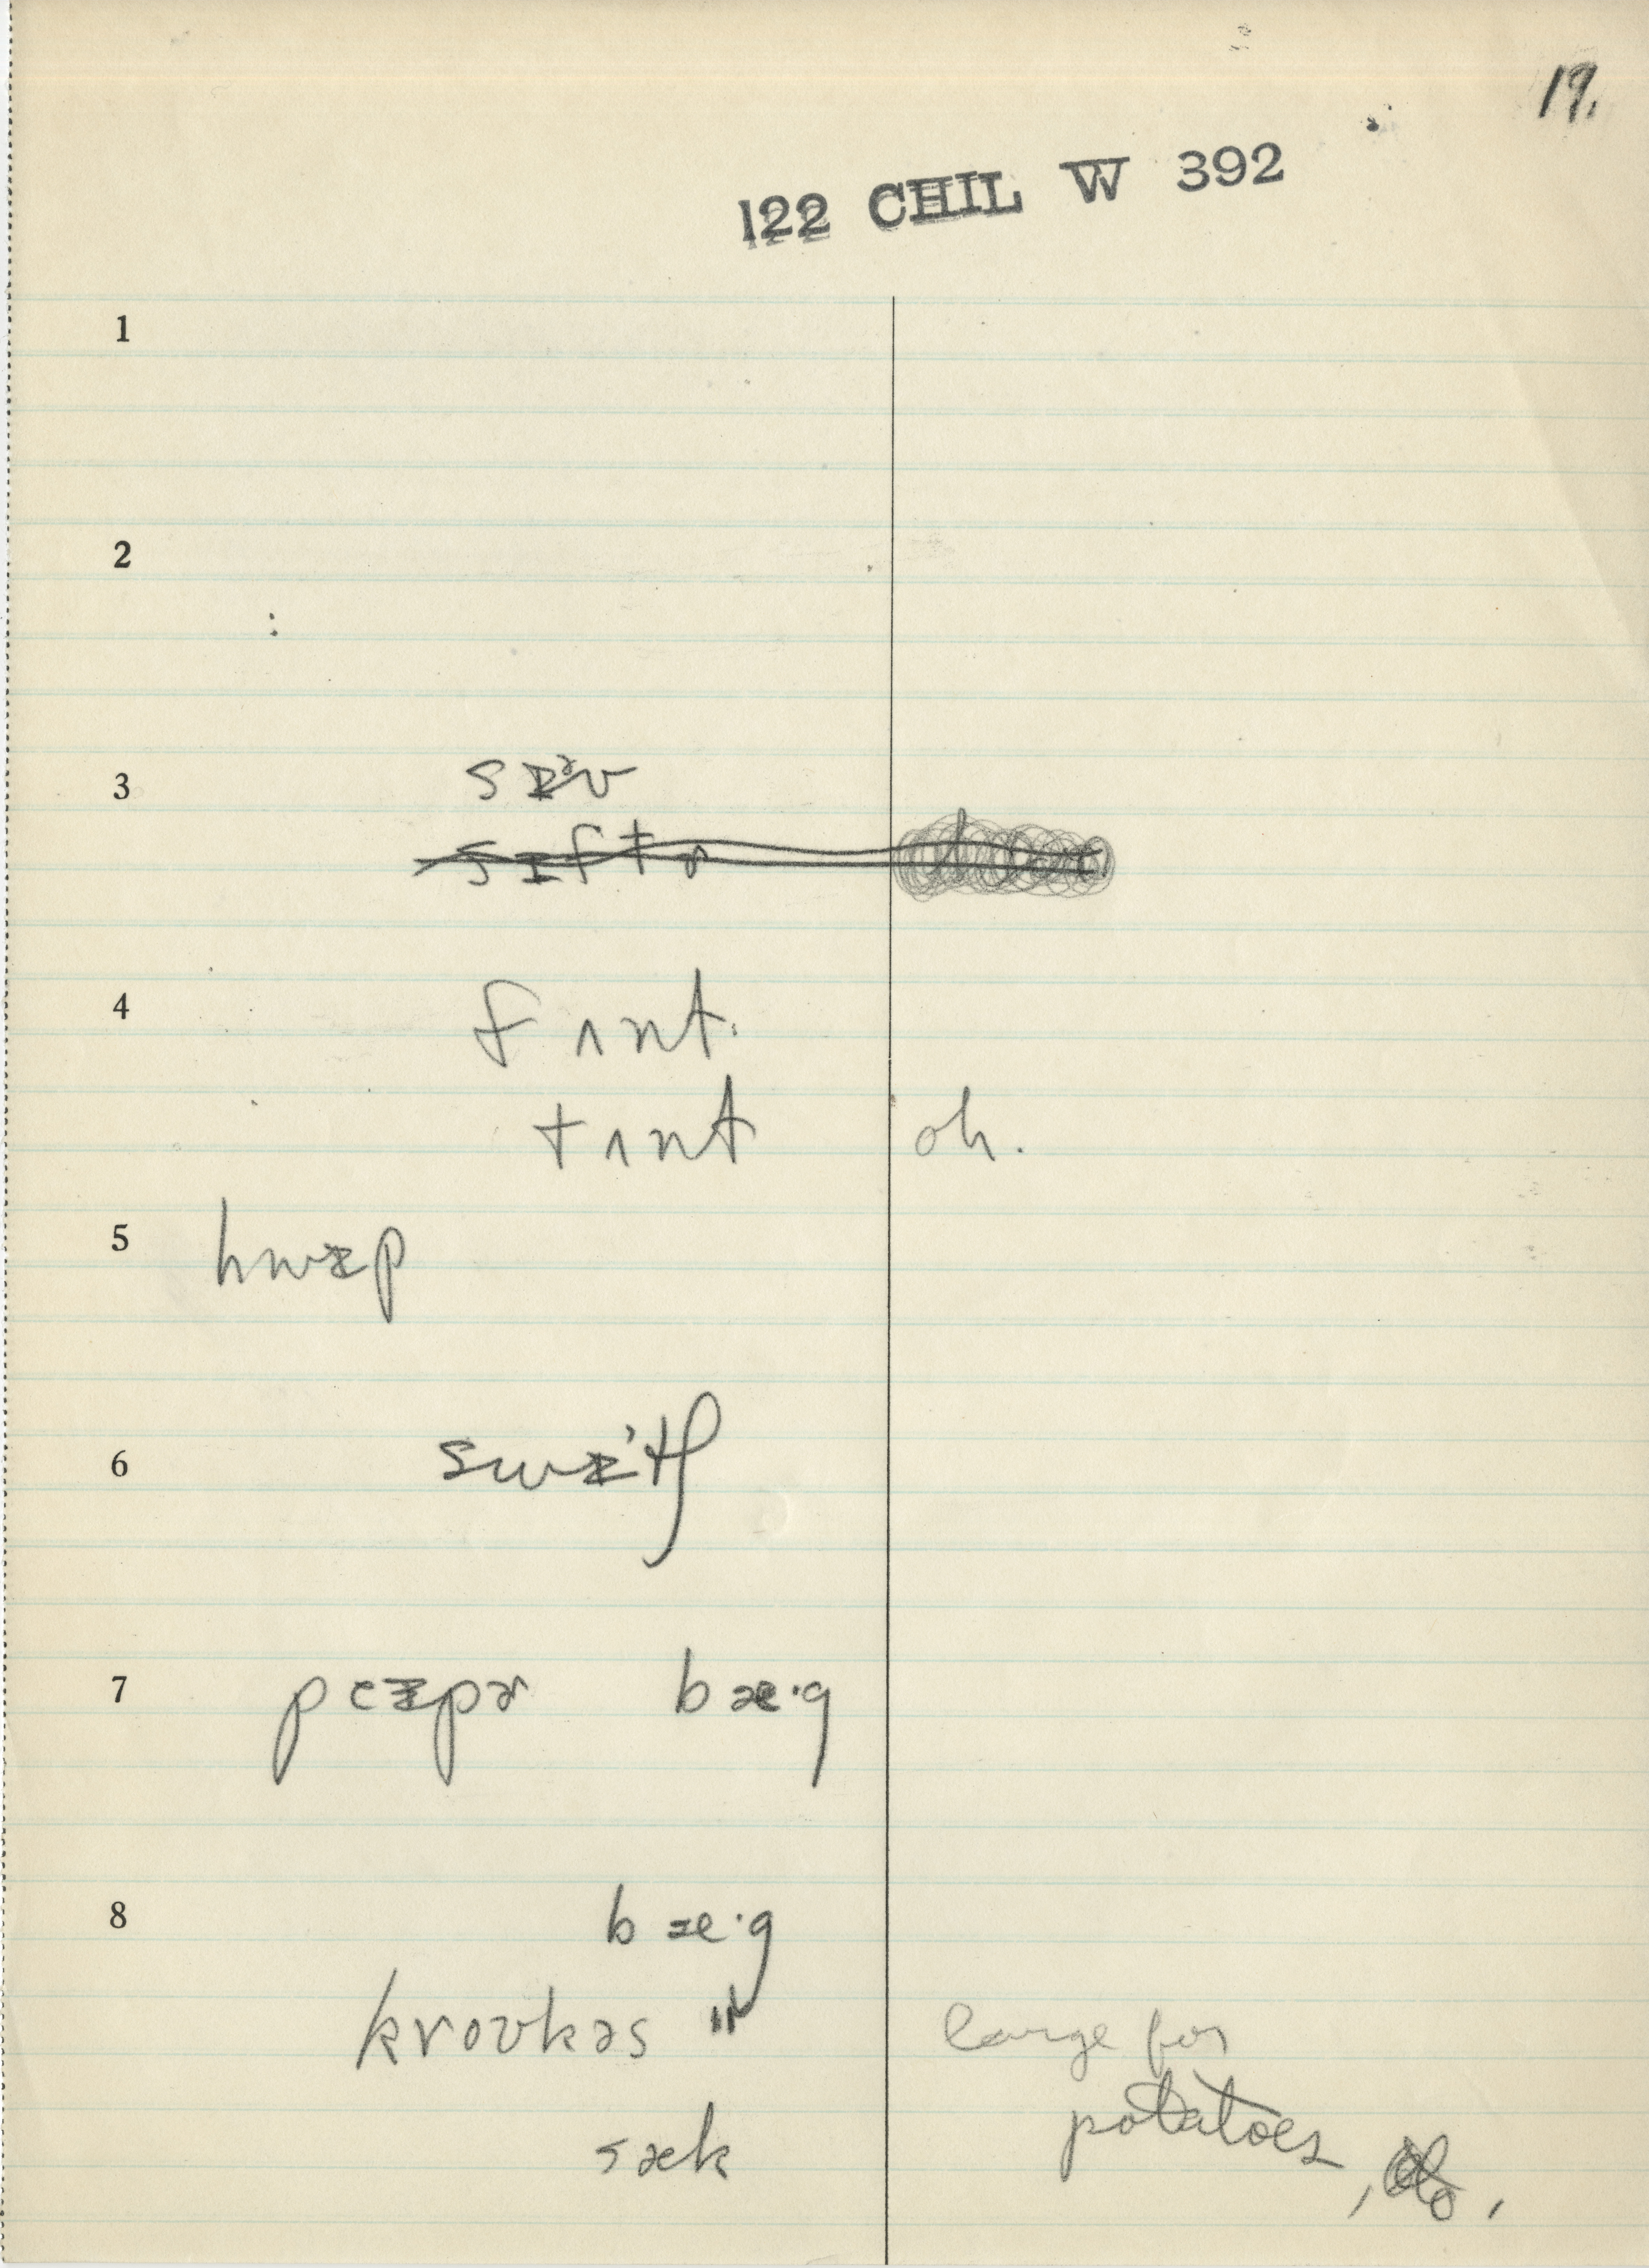 19.
122 CHIL W 392
1
2
3 sɪᵊv
sɪftɚ
4 fʌnt.
tʌnt oh.
5 hwɪp
6 swɪtʃ
7 peɪpɚ bæ·g
8 bæ·g
kroʊkəs "
large for
sæk potatoes,